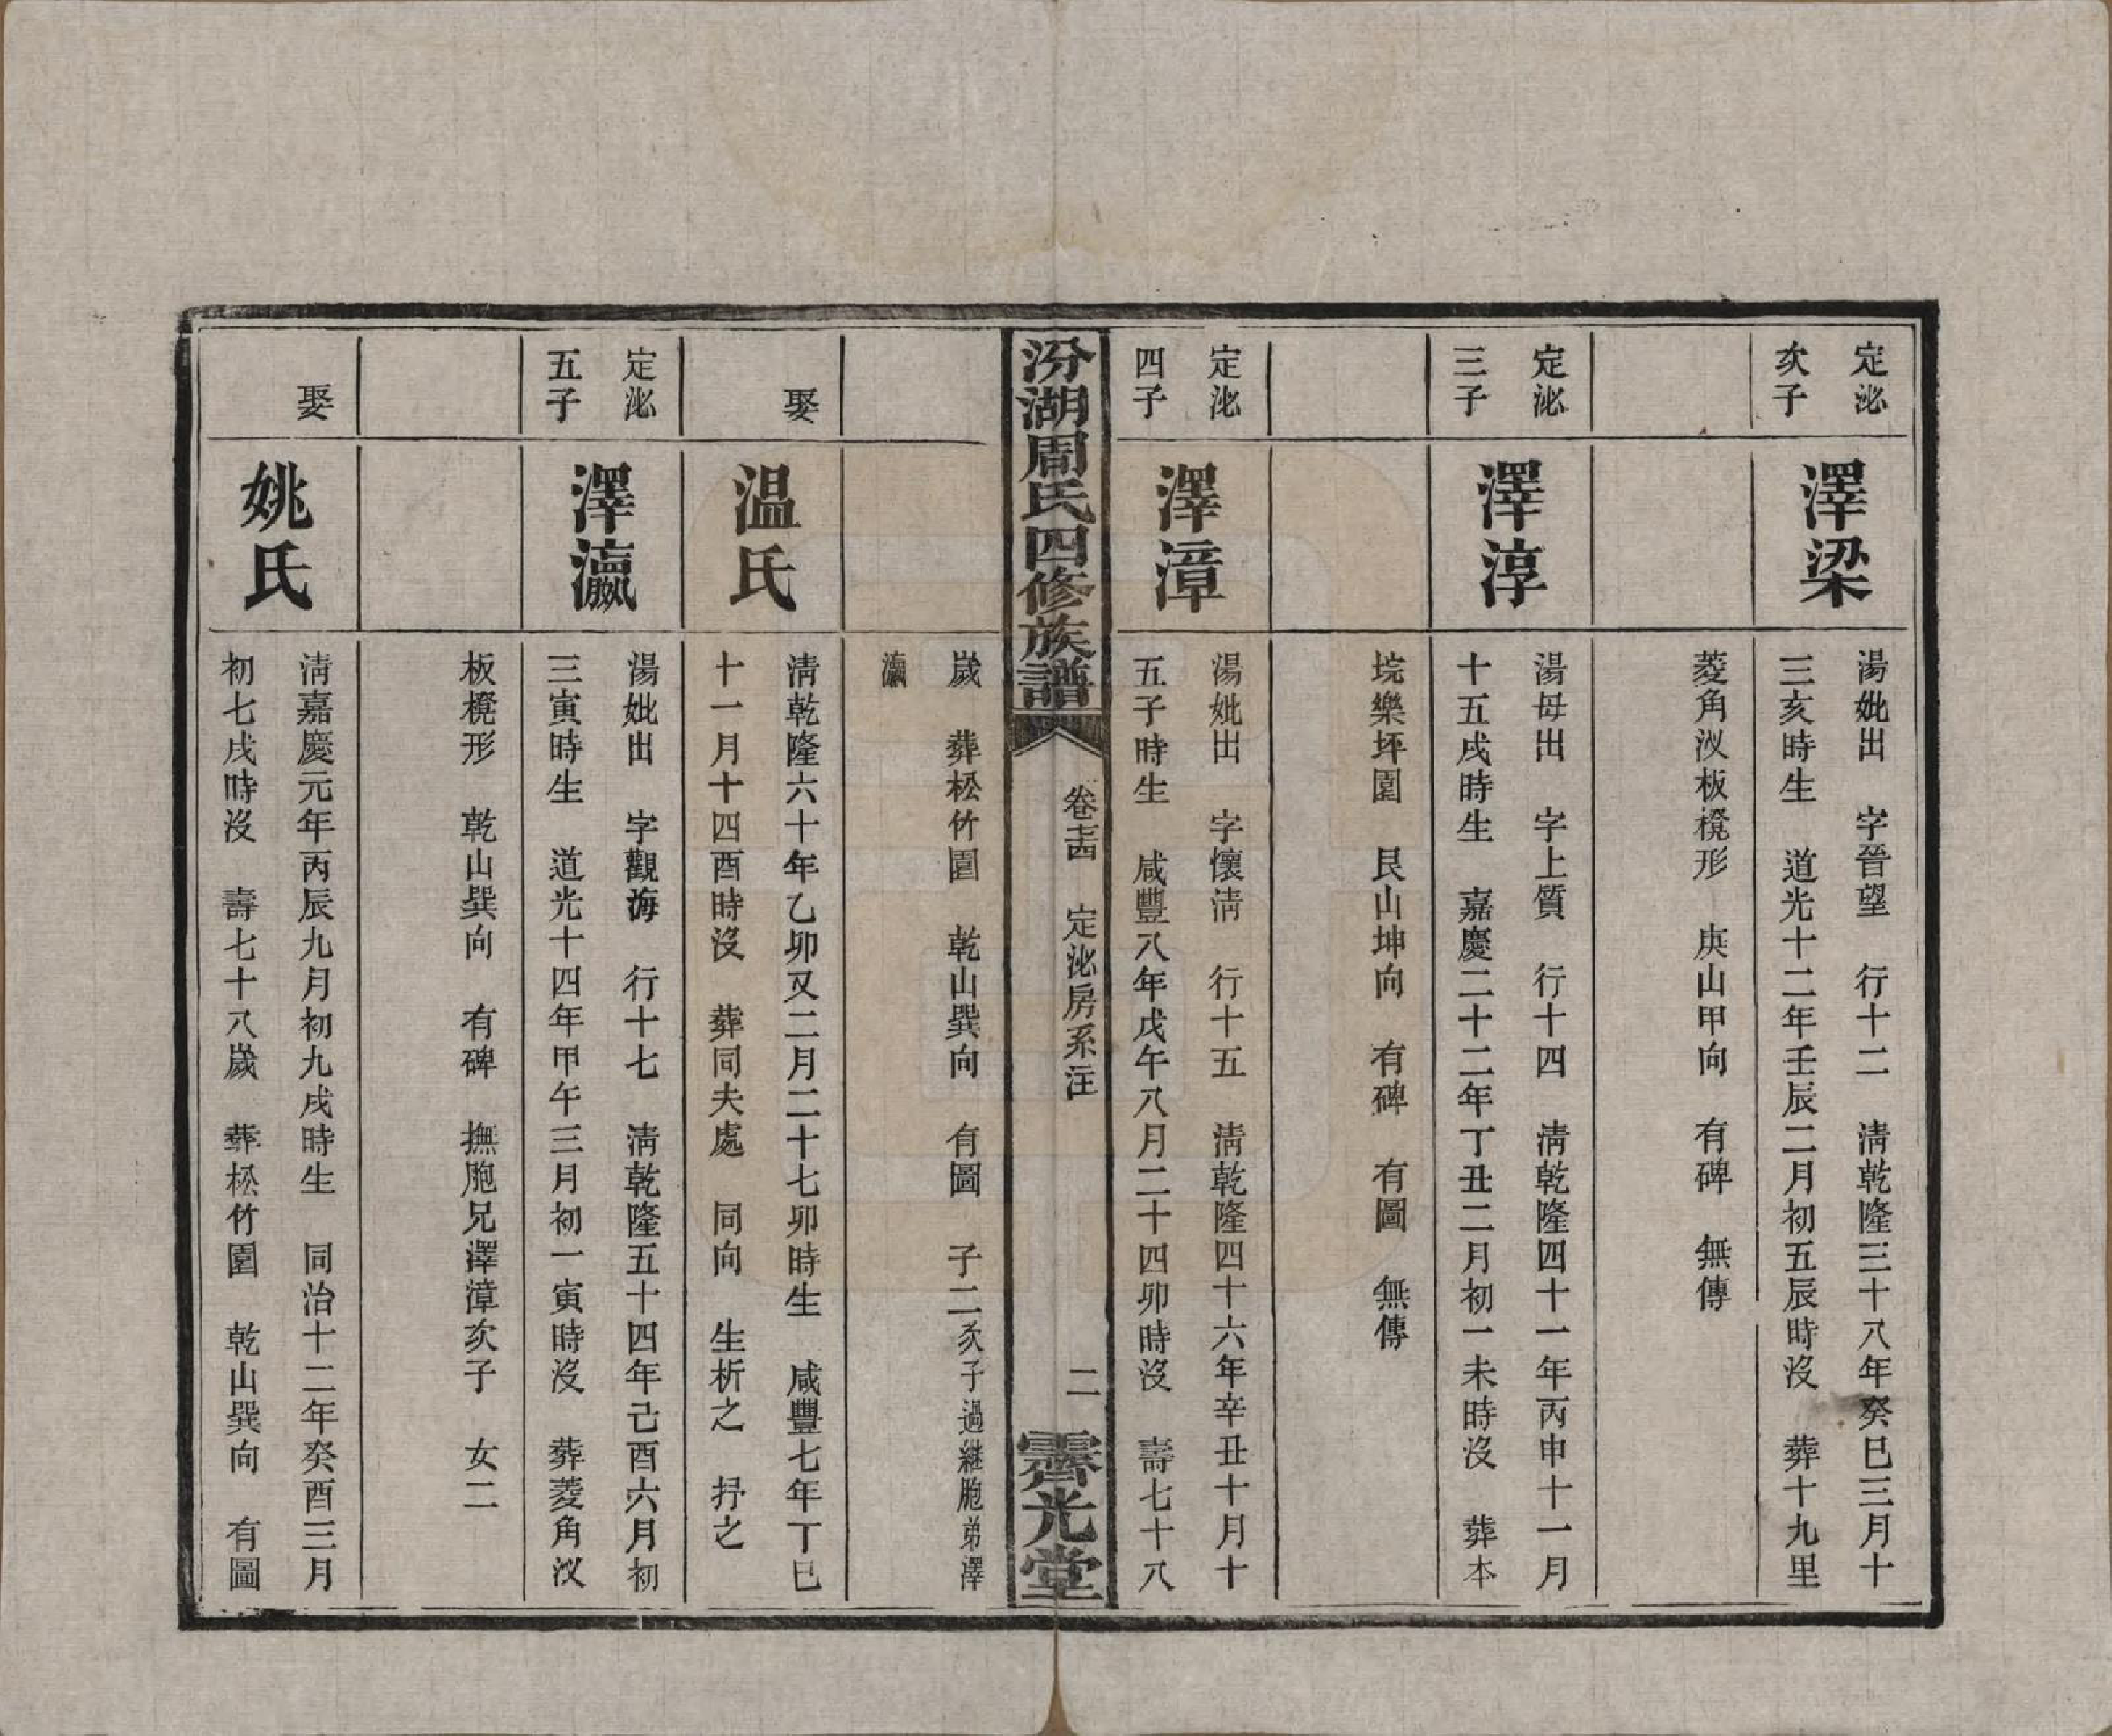 定泌
次子
澤梁
湯妣出　字晉望　行十二　淸乾隆三十八年癸巳三月十
三亥時生　道光十二年壬辰二月初五辰時沒　葬十九里
菱角汊板櫈形　庚山甲向　有碑　無傳
定泌
三子
澤淳
湯母出　字上質　行十四　淸乾隆四十一年丙申十一月
十五戌時生　嘉慶二十二年丁丑二月初一未時沒　葬本
垸樂坪園　艮山坤向　有碑　有圖　無傳
定泌
四子
澤漳
湯妣出　字懷淸　行十五　淸乾隆四十六年辛丑十月十
五子時生　咸豐八年戊午八月二十四卯時沒　壽七十八
汾湖周氏四修族譜
卷十四　定泌房系注
二
霽光堂
歲　葬松竹園　乾山巽向　有圖　子二次子過繼胞弟澤
瀛
娶
温氏
淸乾隆六十年乙卯又二月二十七卯時生　咸豐七年丁巳
十一月十四酉時沒　葬同夫處　同向　生析之　抒之
定泌
五子
澤瀛
湯妣出　字觀海　行十七　淸乾隆五十四年己酉六月初
三寅時生　道光十四年甲午三月初一寅時沒　葬菱角汊
板櫈形　乾山巽向　有碑　撫胞兄澤漳次子　女二
娶
姚氏
淸嘉慶元年丙辰九月初九戌時生　同治十二年癸酉三月
初七戌時沒　壽七十八歲　葬松竹園　乾山巽向　有圖